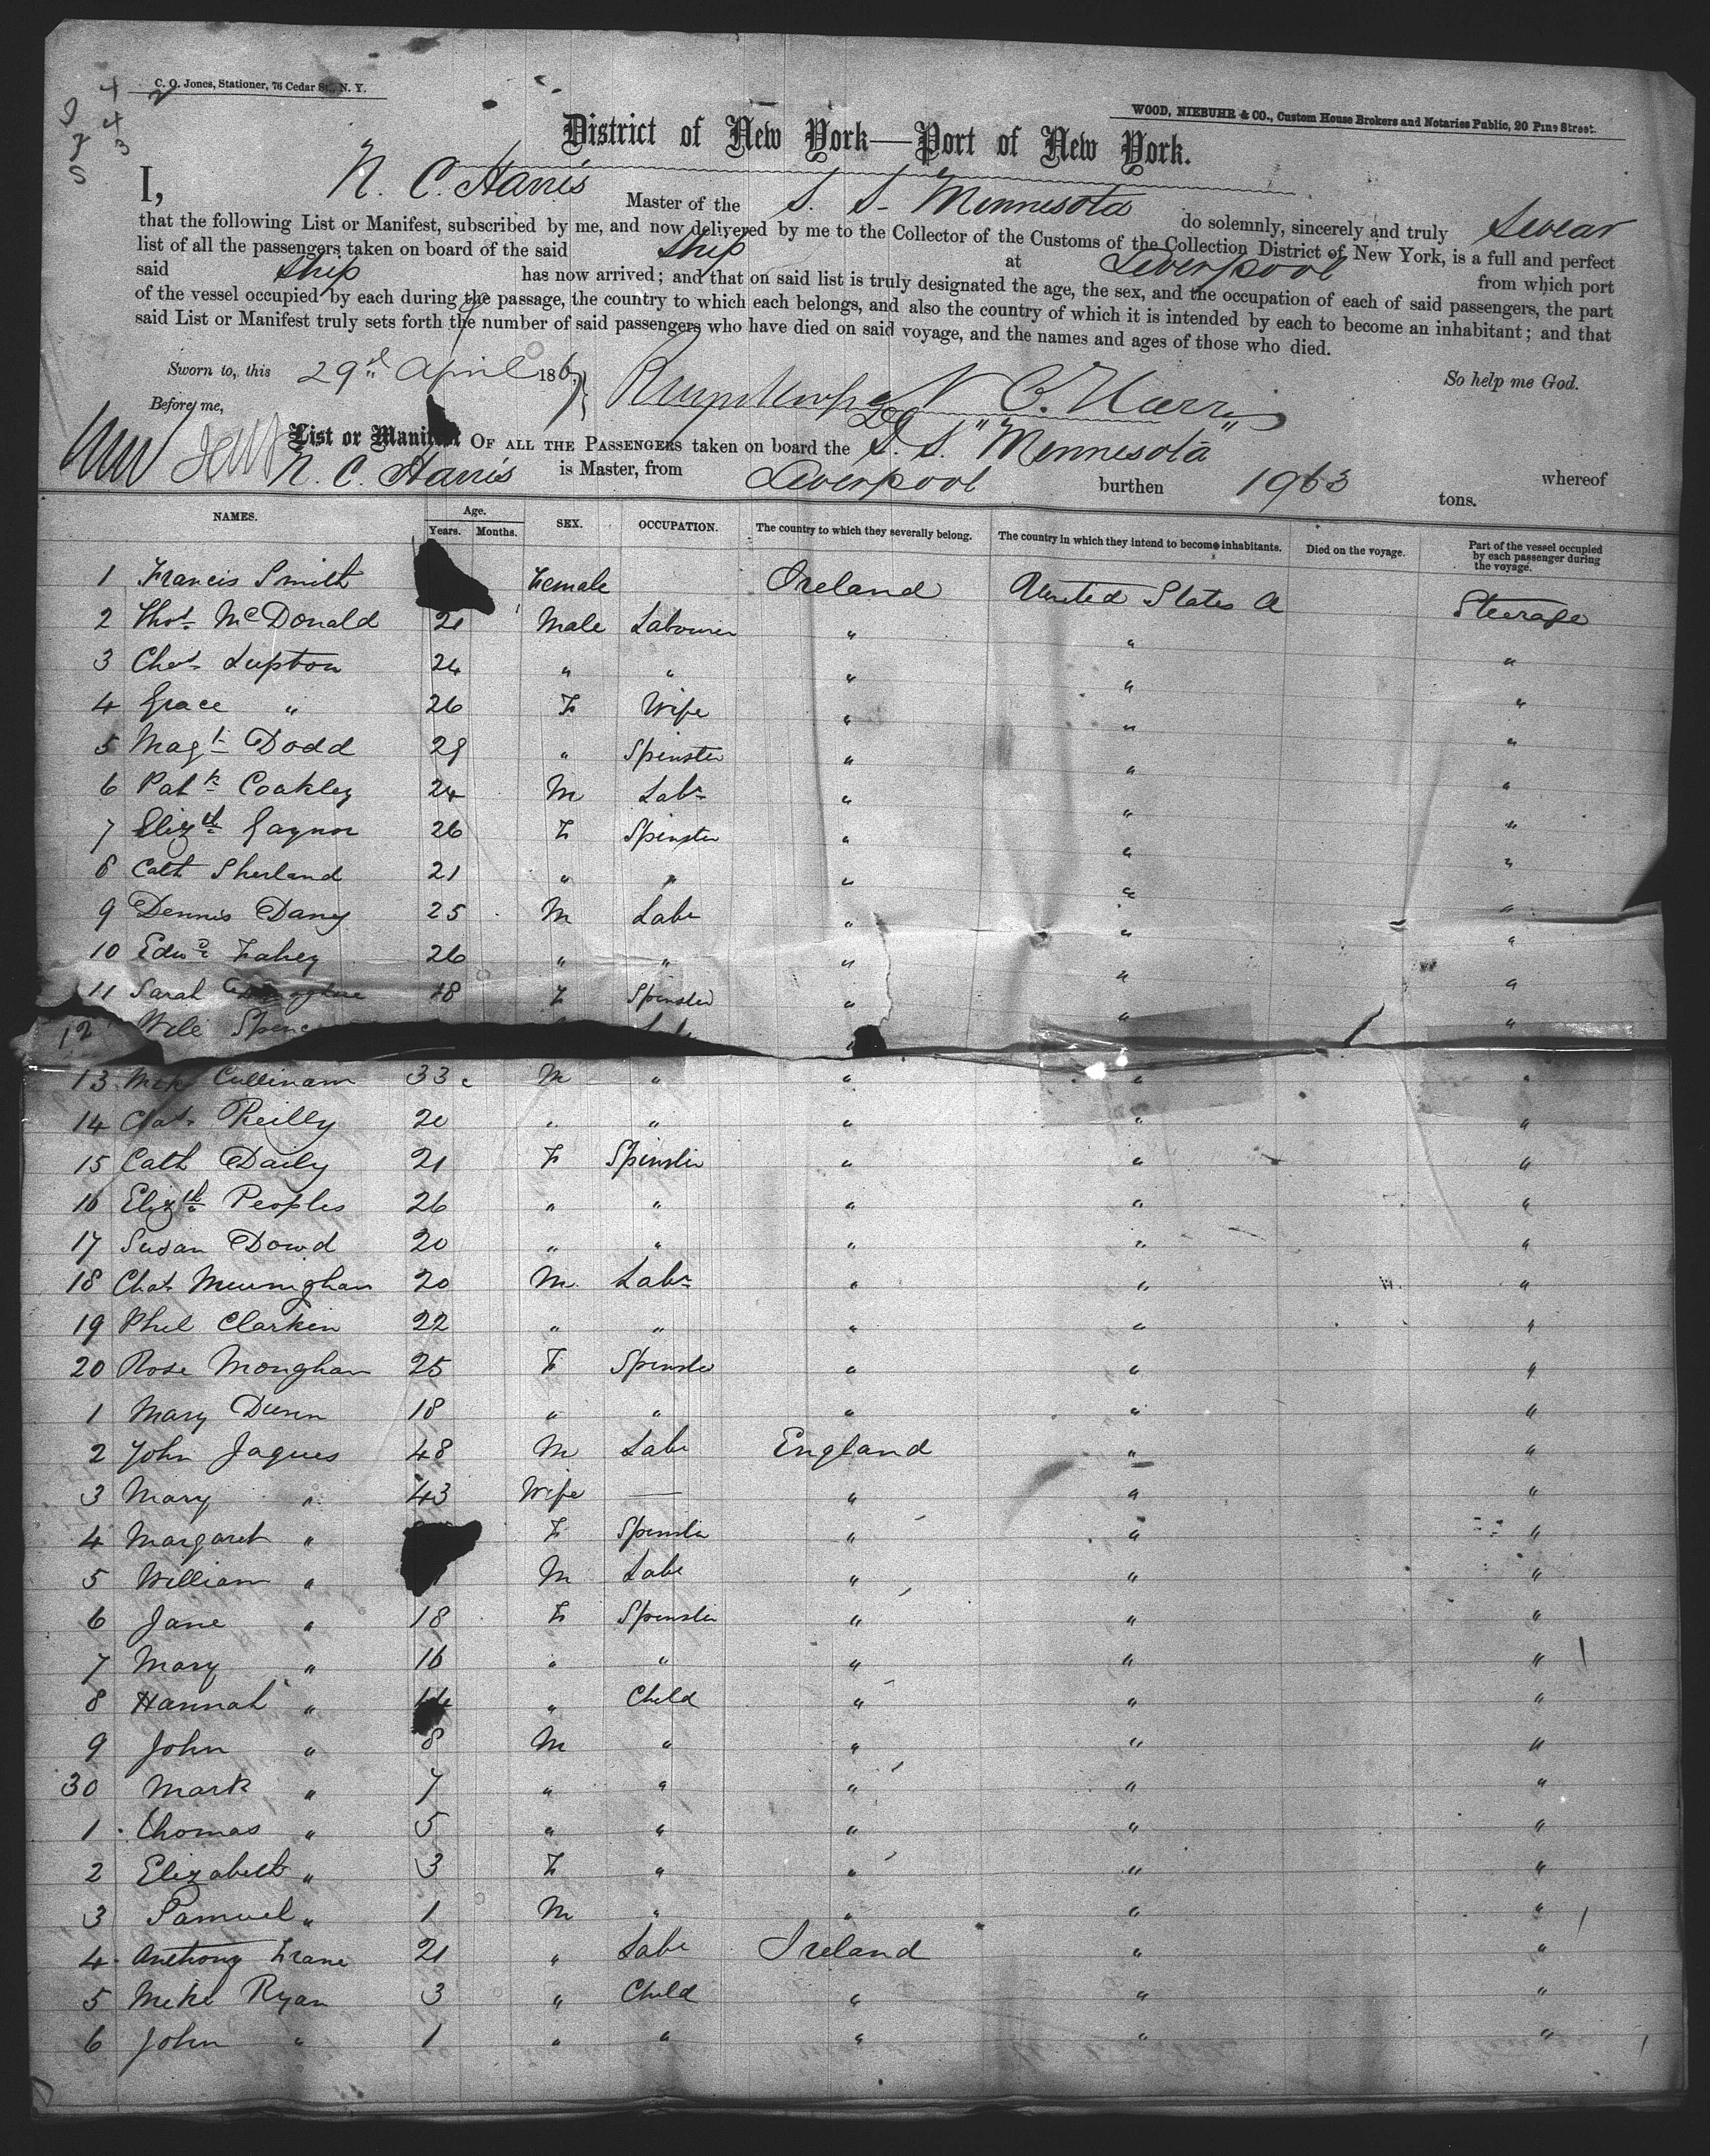 C. O. Jones, Stationer, 76 Cedar St., N. Y.
WOOD, NIEBUHR & CO., Custom House Brokers and Notaries Public, 20 Pine Street.
District of New York—Port of New York.
I, N. C. Harris Master of the S. S. Minnesota do solemnly, sincerely and truly Swear
that the following List or Manifest, subscribed by me, and now delivered by me to the Collector of the Customs of the Collection District of New York, is a full and perfect
list of all the passengers taken on board of the said ship at Liverpool from which port
said ship has now arrived; and that on said list is truly designated the age, the sex, and the occupation of each of said passengers, the part
of the vessel occupied by each during the passage, the country to which each belongs, and also the country of which it is intended by each to become an inhabitant; and that
said List or Manifest truly sets forth the number of said passengers who have died on said voyage, and the names and ages of those who died.
Sworn to, this 29th April 186 So help me God.
Before me, N C. Harris
List or Manifest OF ALL THE PASSENGERS taken on board the S. S. "Minnesota" whereof
N. C. Harris is Master, from Liverpool burthen 1963 tons.
NAMES. Age. Years. Months. SEX. OCCUPATION. The country to which they severally belong. The country in which they intend to become inhabitants. Died on the voyage. Part of the vessel occupied by each passenger during the voyage.
1 Francis Smith Female Ireland United States A Steerage
2 Thos McDonald 21 Male Labourer " " "
3 Chas Lupton 24 " " " " "
4 Grace " 26 F Wife " " "
5 Magt Dodd 29 " Spinster " " "
6 Patk Coakley 24 M Labr " " "
7 Elizth Gaynor 26 F Spinster " " "
8 Cath Sherland 21 " " " " "
9 Dennis Dany 25 M Labr " " "
10 Edwd Fahey 26 " " " " "
11 Sarah 18 F Spinster " " "
12 Spenc " " "
13 Cullinam 33 M " " " "
14 Chas Reilly 20 " " " " "
15 Cath Daily 21 F Spinster " " "
16 Elizth Peoples 26 " " " " "
17 Susan Dowd 20 " " " " "
18 Chas 20 M Labr " " "
19 Phil Clarkin 22 " " " " "
20 Rose Monghan 25 F Spinster " " "
1 Mary Dunn 18 " " " " "
2 John Jaques 48 M Labr England " "
3 Mary " 43 Wife — " " "
4 Margaret " F Spinster " " "
5 William " M Labr " " "
6 Jane " 18 F Spinster " " "
7 Mary " 16 " " " " "
8 Hannah " 14 " Child " " "
9 John " 8 M " " " "
30 Mark " 7 " " " " "
1 Thomas " 5 " " " " "
2 Elizabeth " 3 F " " " "
3 Samuel " 1 M " " " "
4 Anthony Frane 21 " Labr Ireland " "
5 Mike Ryan 3 " Child " " "
6 John " 1 " " " " "